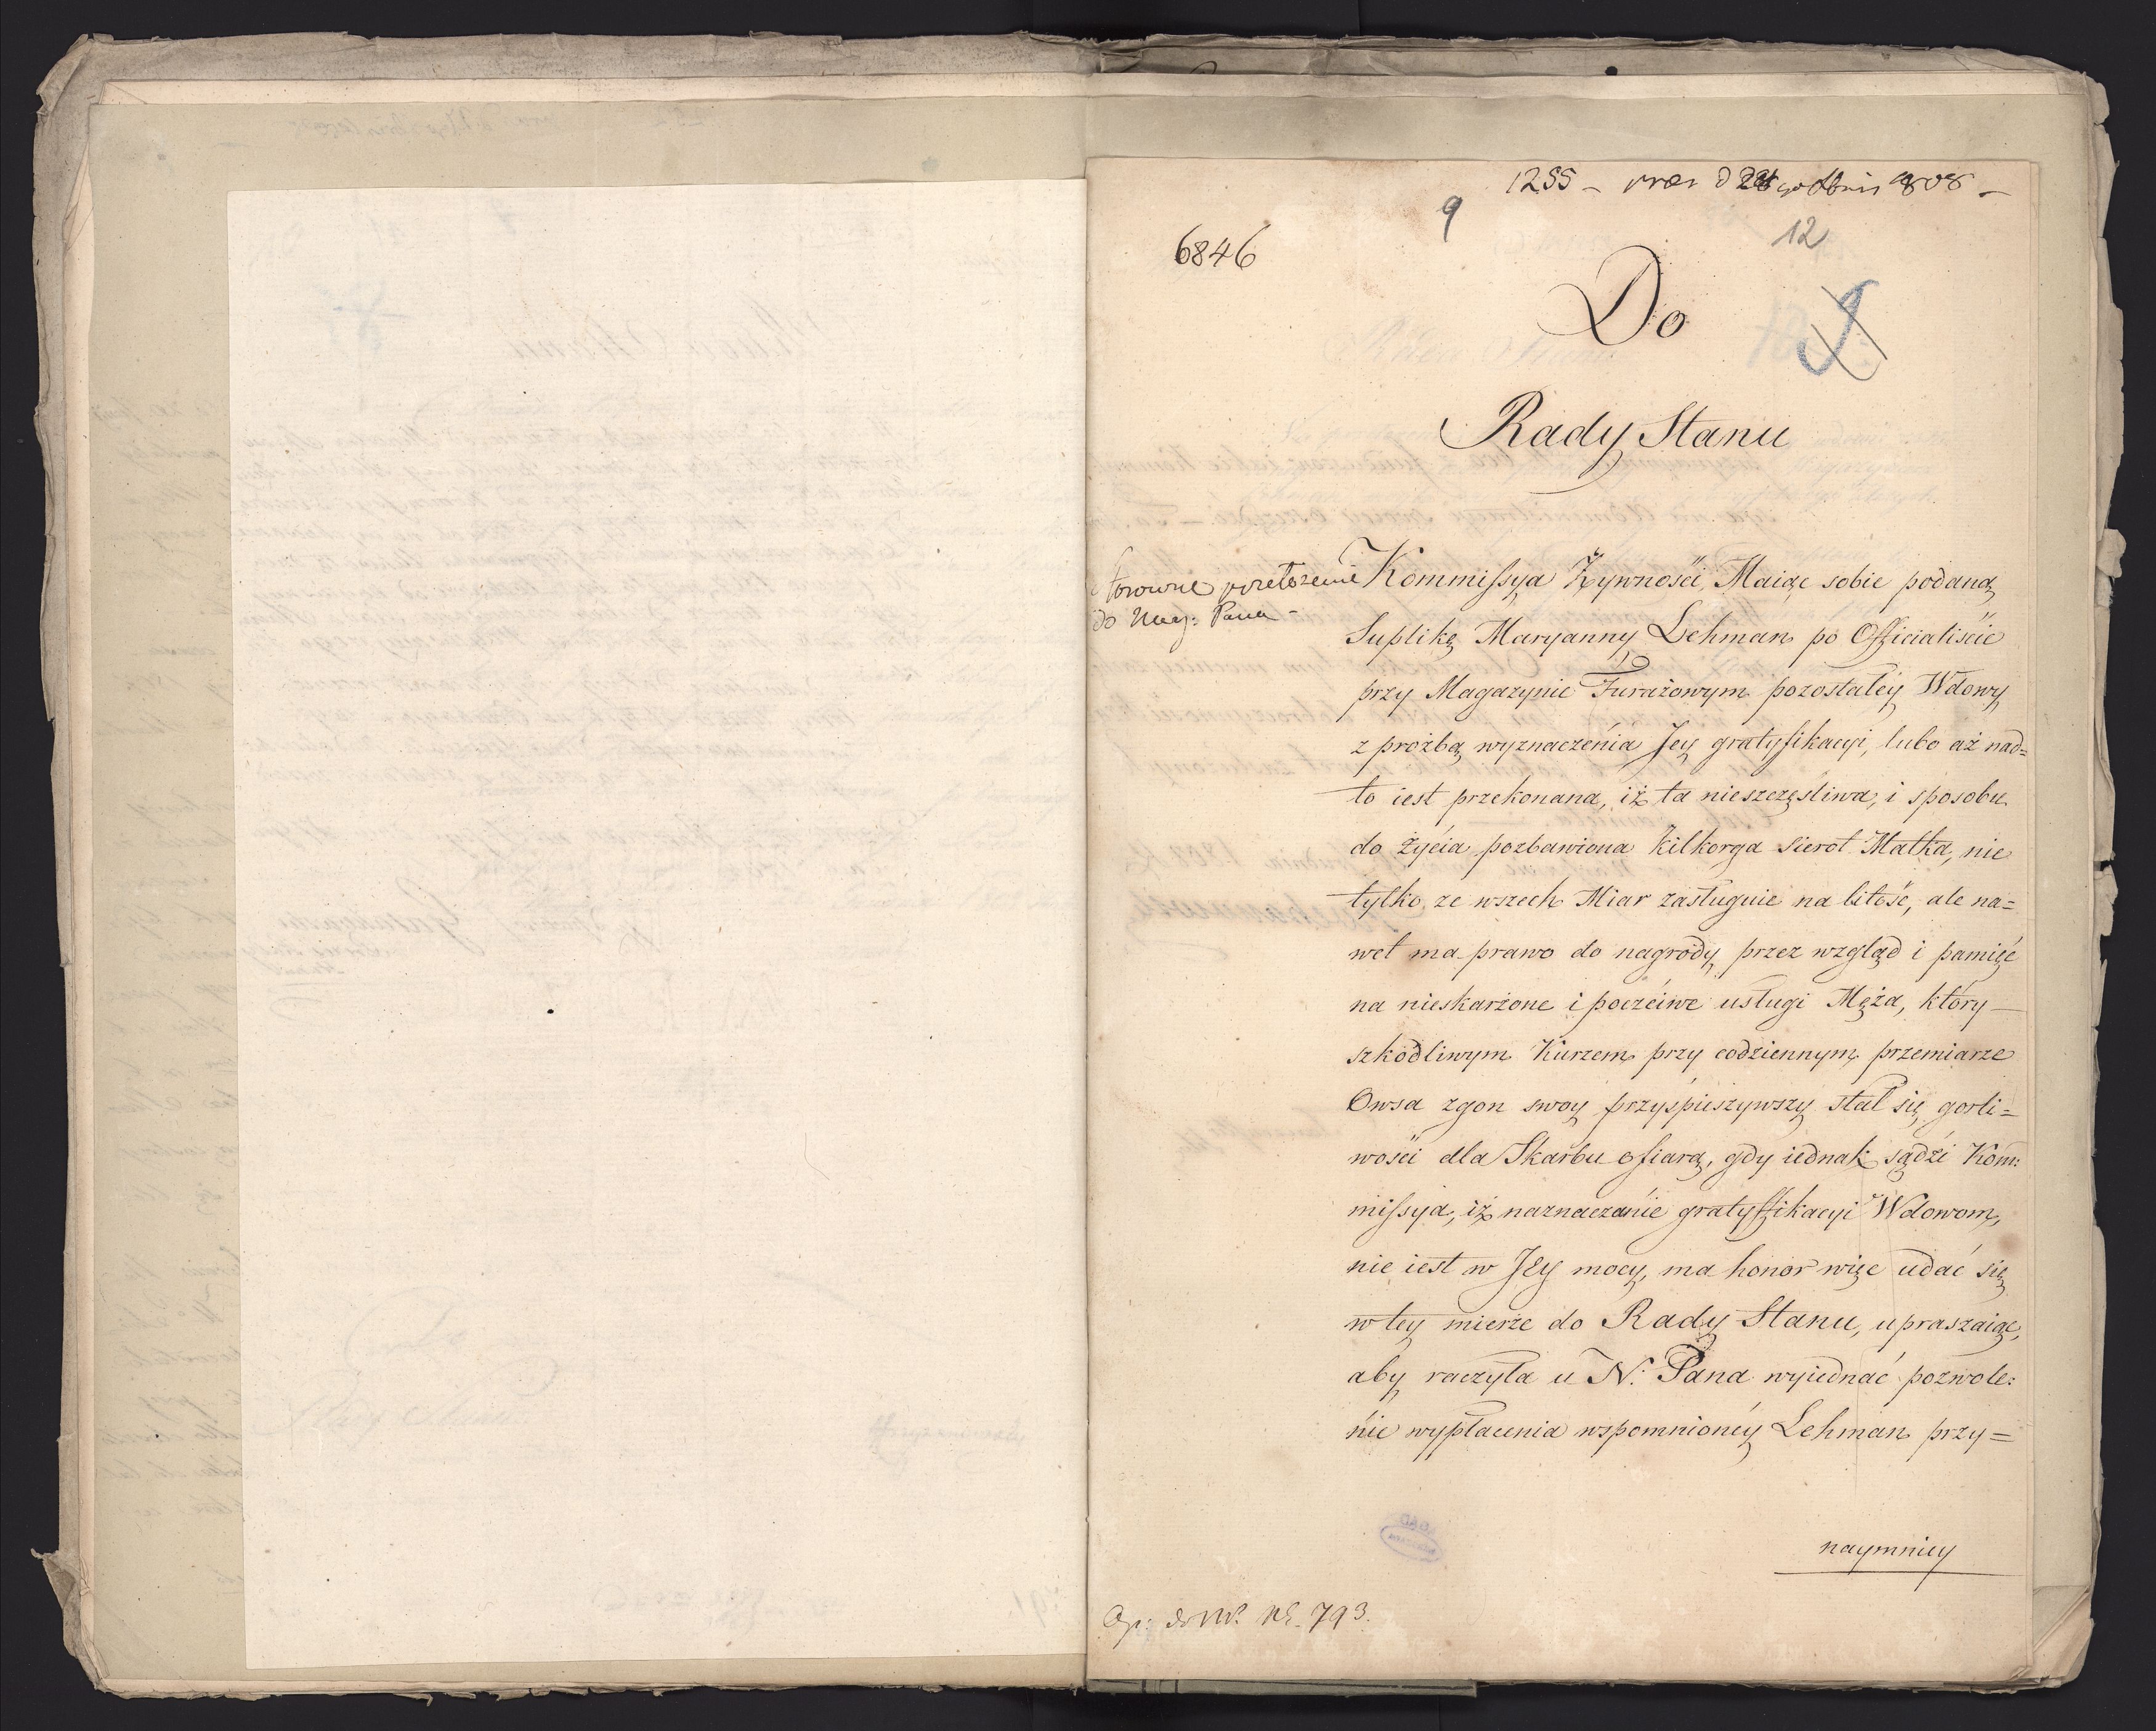 1255 – 1808 –
9
12
6846
Do
9
Rady Stanu
przełożenie
do Nay: Pana –
Kommissya Żywności, Maiąc sobie podaną
Suplikę Maryanny Lehman po Officialiście
przy Magazynie Furażowym pozostałéy Wdowy
z proźbą wyznaczénia Jey gratyfikacyi, lubo aż nad=
to iest przekonana, iż ta nieszczęśliwa, i sposobu
do życia pozbawiona kilkorga sierot Matka, nie
tylko ze wszech Miar zasługuie na litość, ale na=
wet ma prawo do nagrody przez wzgląd i pamięć
na nieskarżone i poczciwe usługi Męża, który –
szkodliwym Kurzem przy codziennym przemiarze
Owsa zgon swoy przyśpieszywszy stał się gorli=
wości dla Skarbu ofiarą, gdy iednak sądzi Kom:
missya, iż naznaczanie gratyffikacyi Wdowom,
nie iest w Jey mocy, ma honor więc udać się
w tey mierze do Rady Stanu, upraszaiąc,
aby raczyła u N: Pana wyiednać pozwole:
nie wypłacenia wspomnionéy Lehman przy=
naymniey
793.